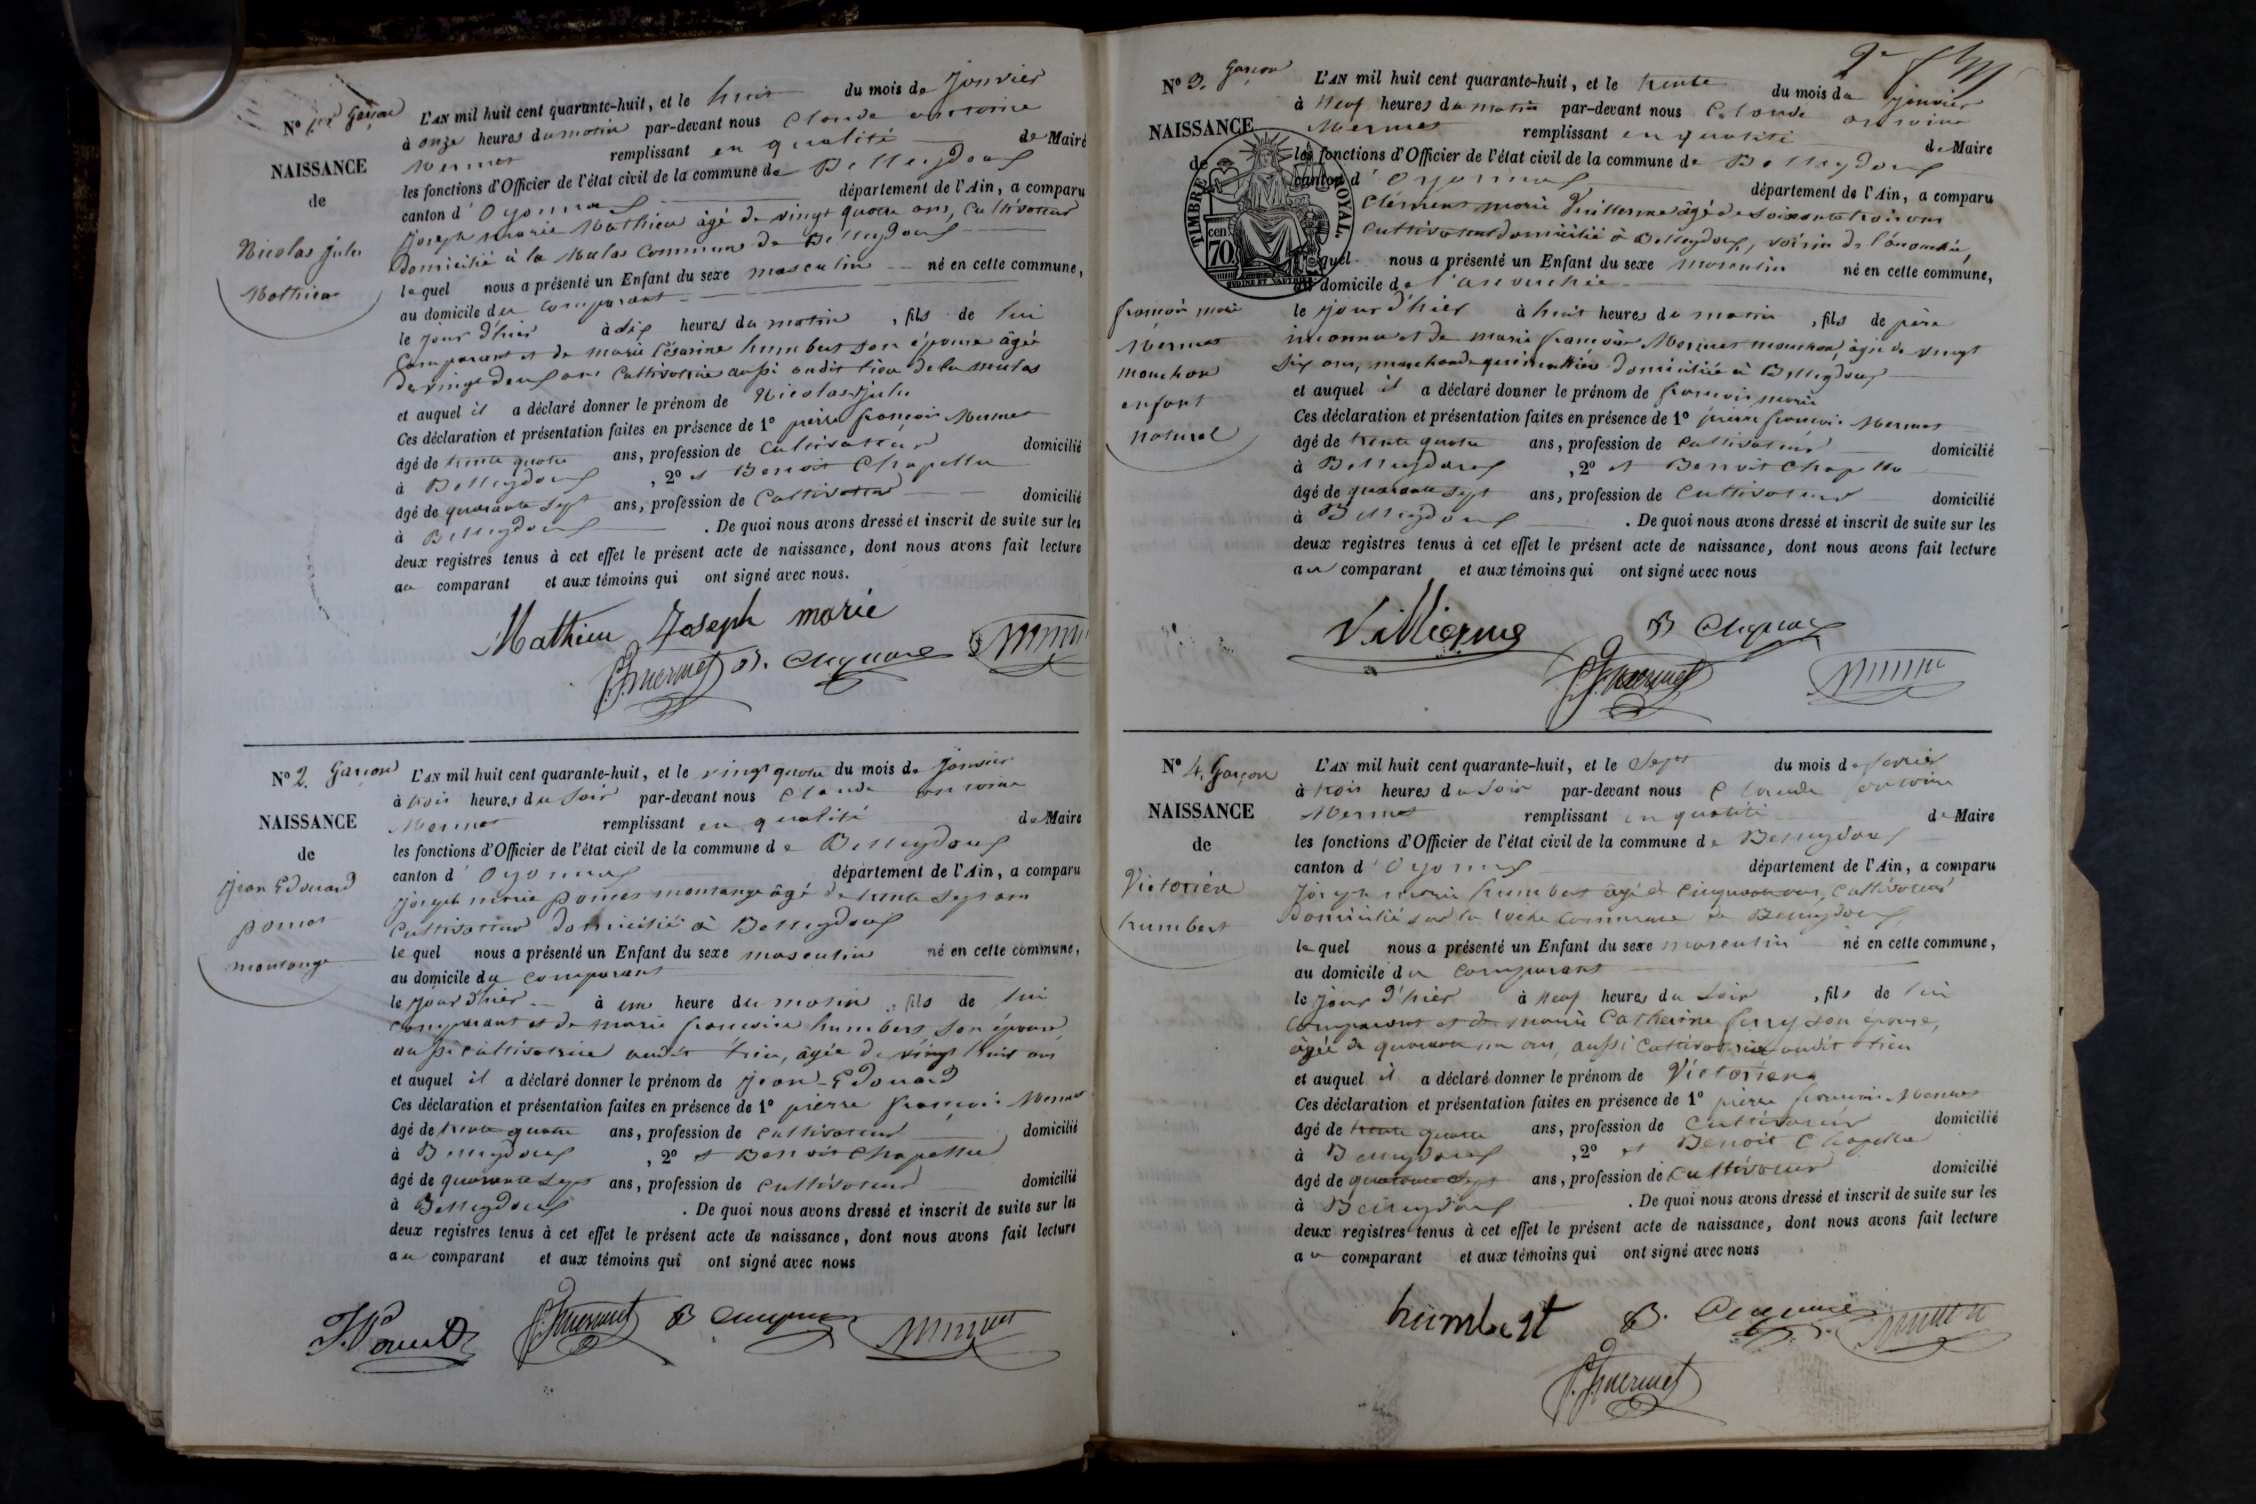 N° 1er Garçon
NAISSANCE
de
Nicolas jules
Mathieu
L'AN mil huit cent quarante-huit, et le huit du mois de Janvier
à onze heures du matin par-devant nous Claude antoine
Mermet remplissant en qualité de Maire
les fonctions d'Officier de l'état civil de la commune de Belleydoux
canton d'Oyonnax département de l'Ain, a comparu
joseph marie Mathieu âgé de vingt quatre ans, Cultivateur
Domicilié à la Mulas Commune de Belleydoux
lequel nous a présenté un Enfant du sexe masculin né en cette commune,
au domicile du comparant
le jour d'hier à dix heures du matin, fils de lui
Comparant et de marie Césarine humbert son épouse âgée
de vingt deux ans Cultivatrice aussi audit lieu de la mulas
et auquel il a déclaré donner le prénom de Nicolas jules
Ces déclaration et présentation faites en présence de 1° pierre françois Mermet
âgé de trente quatre ans, profession de Cultivateur domicilié
à Belleydoux, 2° et Benoit Chapelle
âgé de quarante sept ans, profession de Cultivateur domicilié
à Belleydoux. De quoi nous avons dressé et inscrit de suite sur les
deux registres tenus à cet effet le présent acte de naissance, dont nous avons fait lecture
au comparant et aux témoins qui ont signé avec nous.
Mathieu Joseph marie
N° 2. Garçon
NAISSANCE
de
jean Edouard
poncet
montange
L'AN mil huit cent quarante-huit, et le vingt quatre du mois de Janvier
à trois heures du soir par-devant nous Claude antoine
Mermet remplissant en qualité de Maire
les fonctions d'Officier de l'état civil de la commune de Belleydoux
canton d'Oyonnax département de l'Ain, a comparu
joseph marie poncet montange âgé de trente sept ans
Cultivateur domicilié à Belleydoux
lequel nous a présenté un Enfant du sexe masculin né en cette commune,
au domicile du comparant
le jour d'hier à une heure du matin, fils de lui
comparant et de marie françoise humbert son épouse
aussi cultivatrice audit lieu, âgée de vingt huit ans
et auquel il a déclaré donner le prénom de jean-Edouard
Ces déclaration et présentation faites en présence de 1° pierre françois Mermet
âgé de trente quatre ans, profession de cultivateur domicilié
à Belleydoux, 2° et Benoit Chapelle
âgé de quarante sept ans, profession de cultivateur domicilié
à Belleydoux. De quoi nous avons dressé et inscrit de suite sur les
deux registres tenus à cet effet le présent acte de naissance, dont nous avons fait lecture
au comparant et aux témoins qui ont signé avec nous
N° 3. Garçon
NAISSANCE
de
TIMBRE ROYAL.
70 cent.
françois marie
Mermet
mouchon
enfant
naturel
L'AN mil huit cent quarante-huit, et le trente du mois de janvier
à neuf heures du matin par-devant nous Claude antoine
Mermet remplissant en qualité de Maire
les fonctions d'Officier de l'état civil de la commune de Belleydoux
canton d'Oyonnax département de l'Ain, a comparu
Clément marie Villerme âgé de soixante trois ans
Cultivateur domicilié à Belleydoux, voisin de l'accouchée,
lequel nous a présenté un Enfant du sexe masculin né en cette commune,
au domicile de l'accouchée
le jour d'hier à huit heures du matin, fils de père
inconnu et de marie françoise Mermet mouchon, âgée de vingt
six ans, domiciliée à Belleydoux
et auquel il a déclaré donner le prénom de françois marie
Ces déclaration et présentation faites en présence de 1° pierre françois Mermet
âgé de trente quatre ans, profession de cultivateur domicilié
à Belleydoux, 2° et Benoit Chapelle
âgé de quarante sept ans, profession de Cultivateur domicilié
à Belleydoux. De quoi nous avons dressé et inscrit de suite sur les
deux registres tenus à cet effet le présent acte de naissance, dont nous avons fait lecture
au comparant et aux témoins qui ont signé avec nous
N° 4. Garçon
NAISSANCE
de
Victorien
humbert
L'AN mil huit cent quarante-huit, et le sept du mois de fevrier
à trois heures du soir par-devant nous Claude antoine
Mermet remplissant en qualité de Maire
les fonctions d'Officier de l'état civil de la commune de Belleydoux
canton d'Oyonnax département de l'Ain, a comparu
joseph marie humbert âgé de cinquante ans, Cultivateur
Domicilié sur la roche commune de Belleydoux
lequel nous a présenté un Enfant du sexe masculin né en cette commune,
au domicile du comparant
le jour d'hier à neuf heures du soir, fils de lui
comparant et de marie Catherine son épouse,
âgée de quarante un ans, aussi Cultivatrice audit lieu
et auquel il a déclaré donner le prénom de Victorien
Ces déclaration et présentation faites en présence de 1° pierre françois Mermet
âgé de trente quatre ans, profession de cultivateur domicilié
à Belleydoux, 2° et Benoit Chapelle
âgé de quarante sept ans, profession de cultivateur domicilié
à Belleydoux. De quoi nous avons dressé et inscrit de suite sur les
deux registres tenus à cet effet le présent acte de naissance, dont nous avons fait lecture
au comparant et aux témoins qui ont signé avec nous
humbert